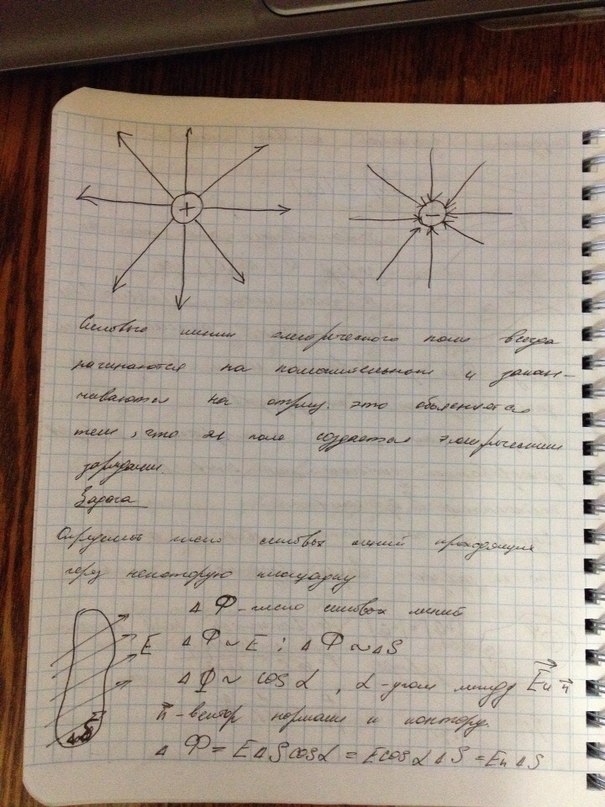 +
−
Силовые линии электрического поля всегда
начинаются на положительном и закан-
чиваются на отриц. это объясняется
тем, что эл поле создается электрическими
зарядами.
Задача
Определить число силовых линий проходящих
через некоторую площадку
Δ Ф - число силовых линий
E Δ Ф ~ E ; Δ Ф ~ ΔS
Δ Ф ~ cos α , α - угол между E⃗ и n⃗
n⃗ - вектор нормали к контуру.
ΔS
Δ Ф = E ΔS cos α = E cos α ΔS = En ΔS